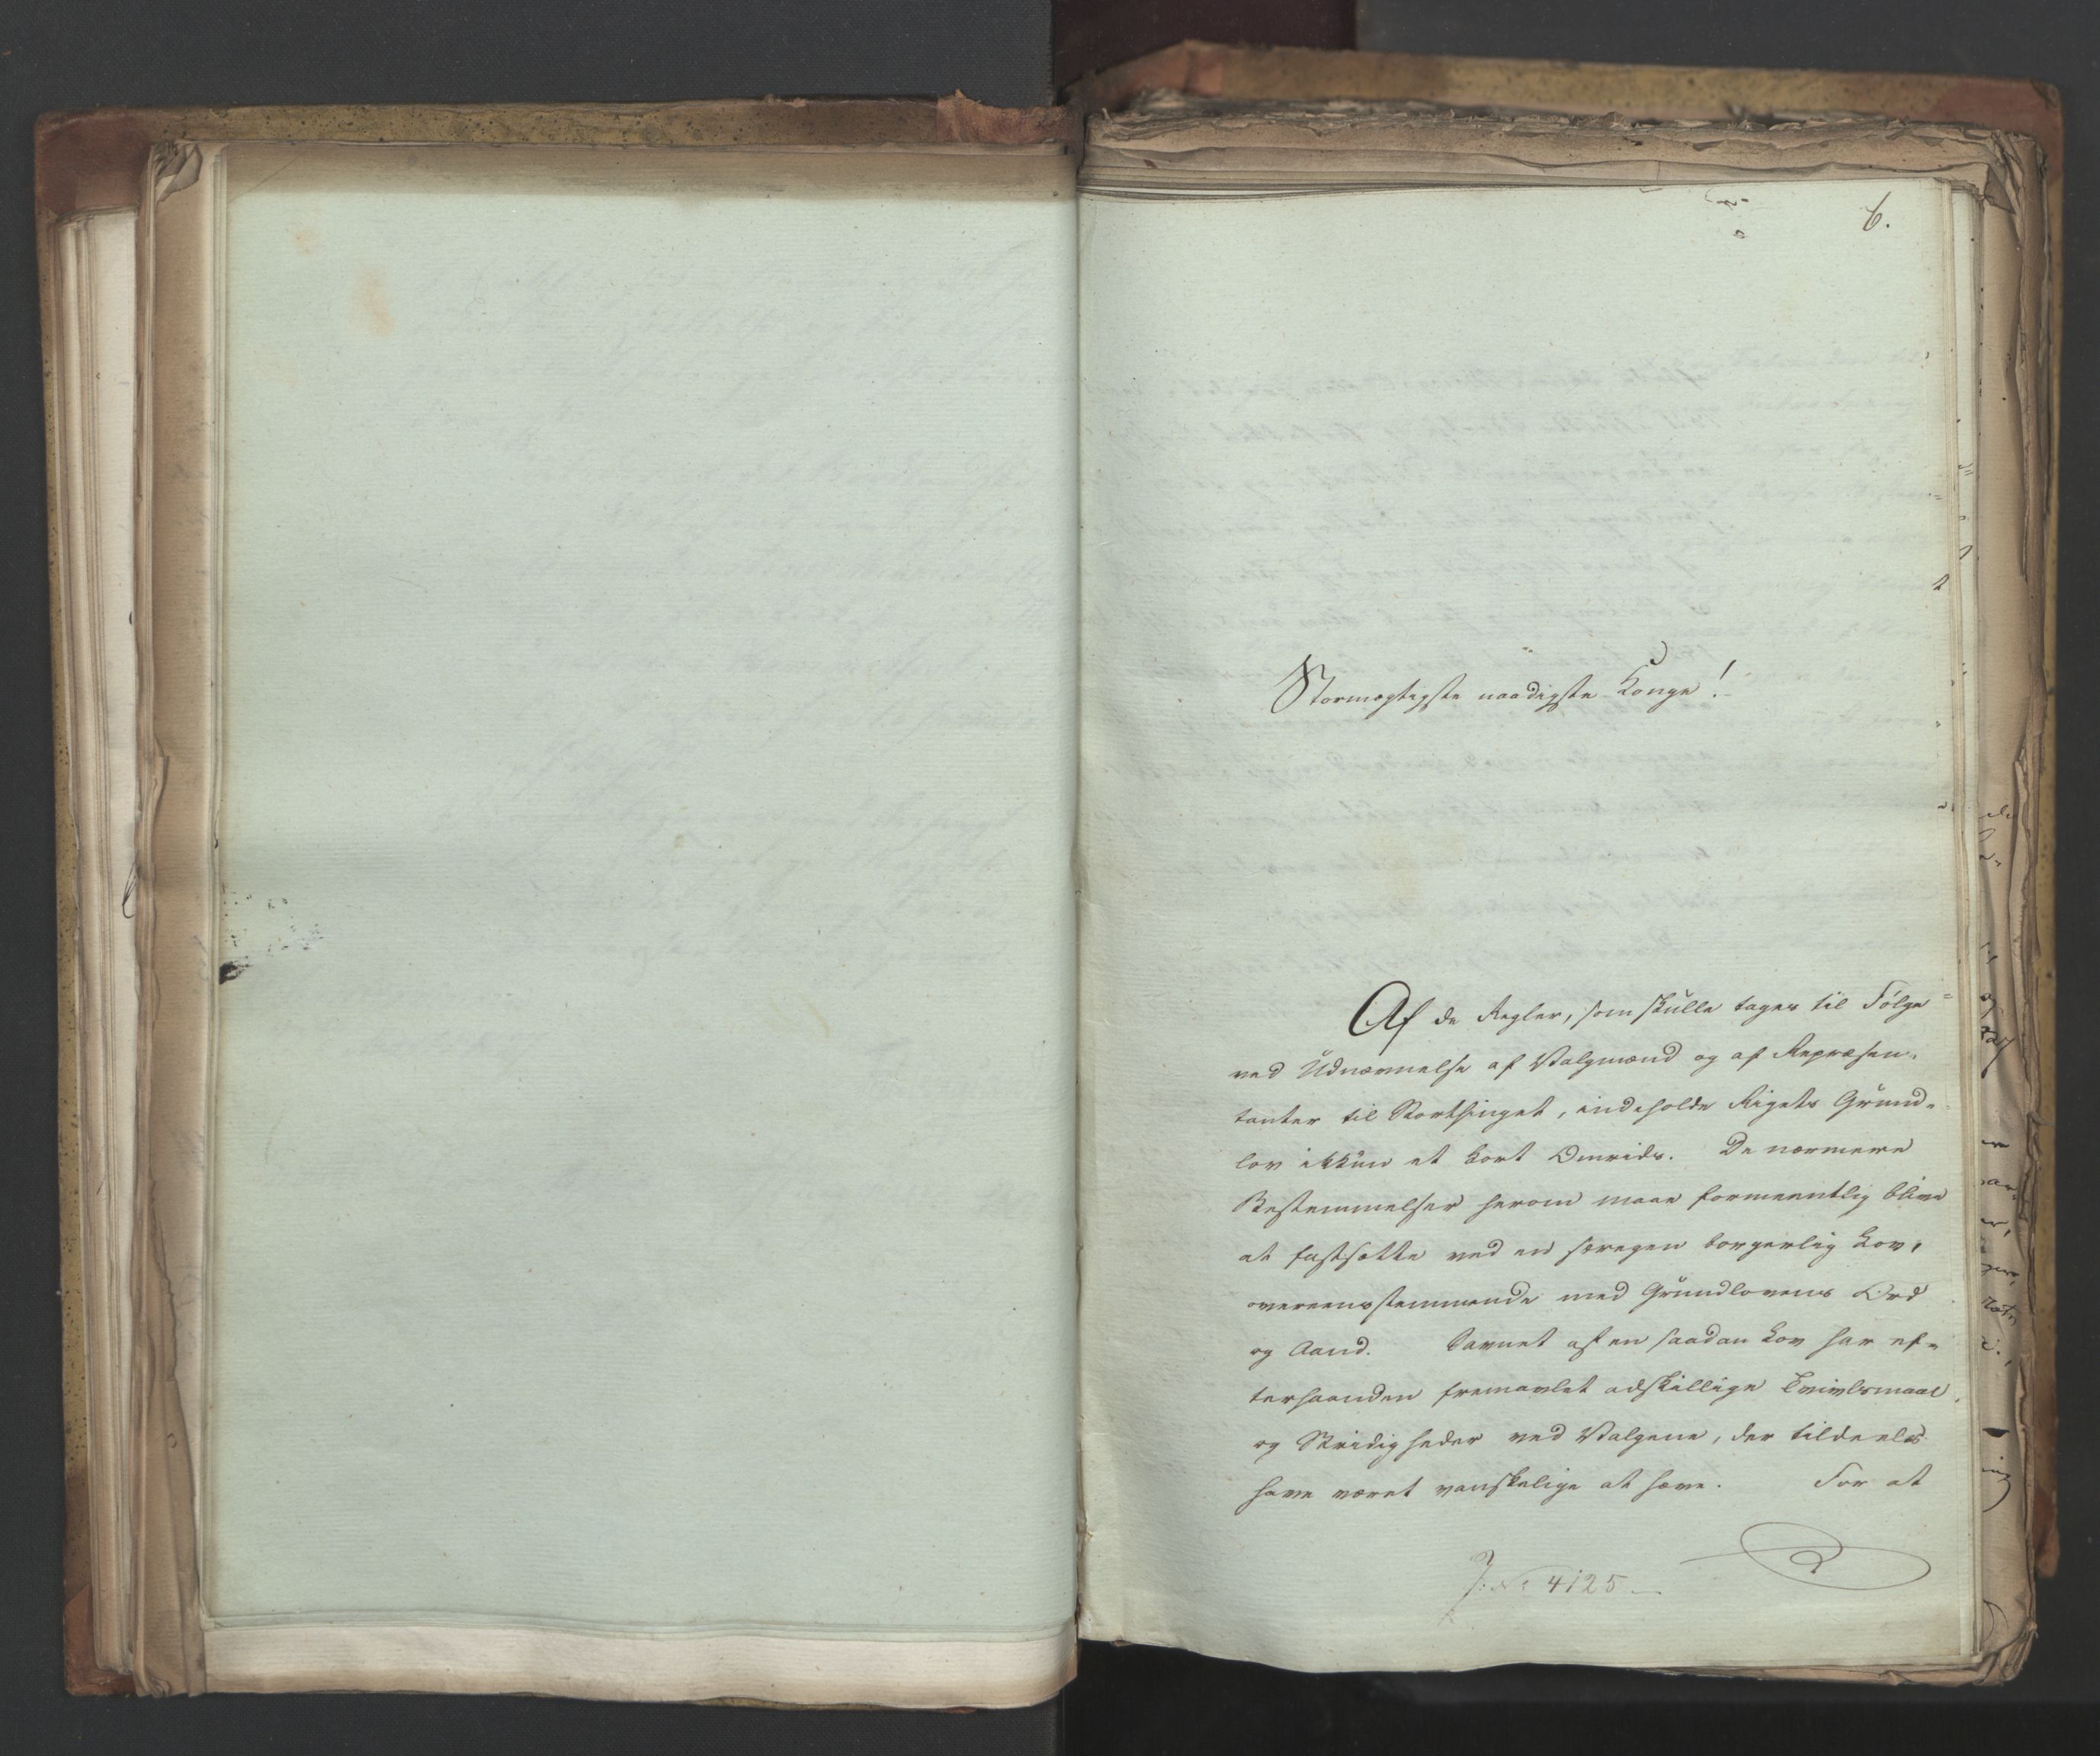 6.
Stormægtigste naadigste Konge!
Af de Regler, som skulle tages til Følge
ved Udnævnelse af Valgmænd og af Repræsen-
tanter til Storthinget, indeholde Rigets Grund-
lov ikkun et kort Omrids. De nærmere
Bestemmelser herom maae formeentlig blive
at fastsætte ved en særegen borgerlig Lov,
overeensstemmende med Grundlovens Ord
og Aand. Savnet af en saadan Lov har ef-
terhaanden fremavlet adskillige Tvivlsmaal
og Stridigheder ved Valgene, der tildeels
have været vanskelige at hæve. For at
J: No 4125